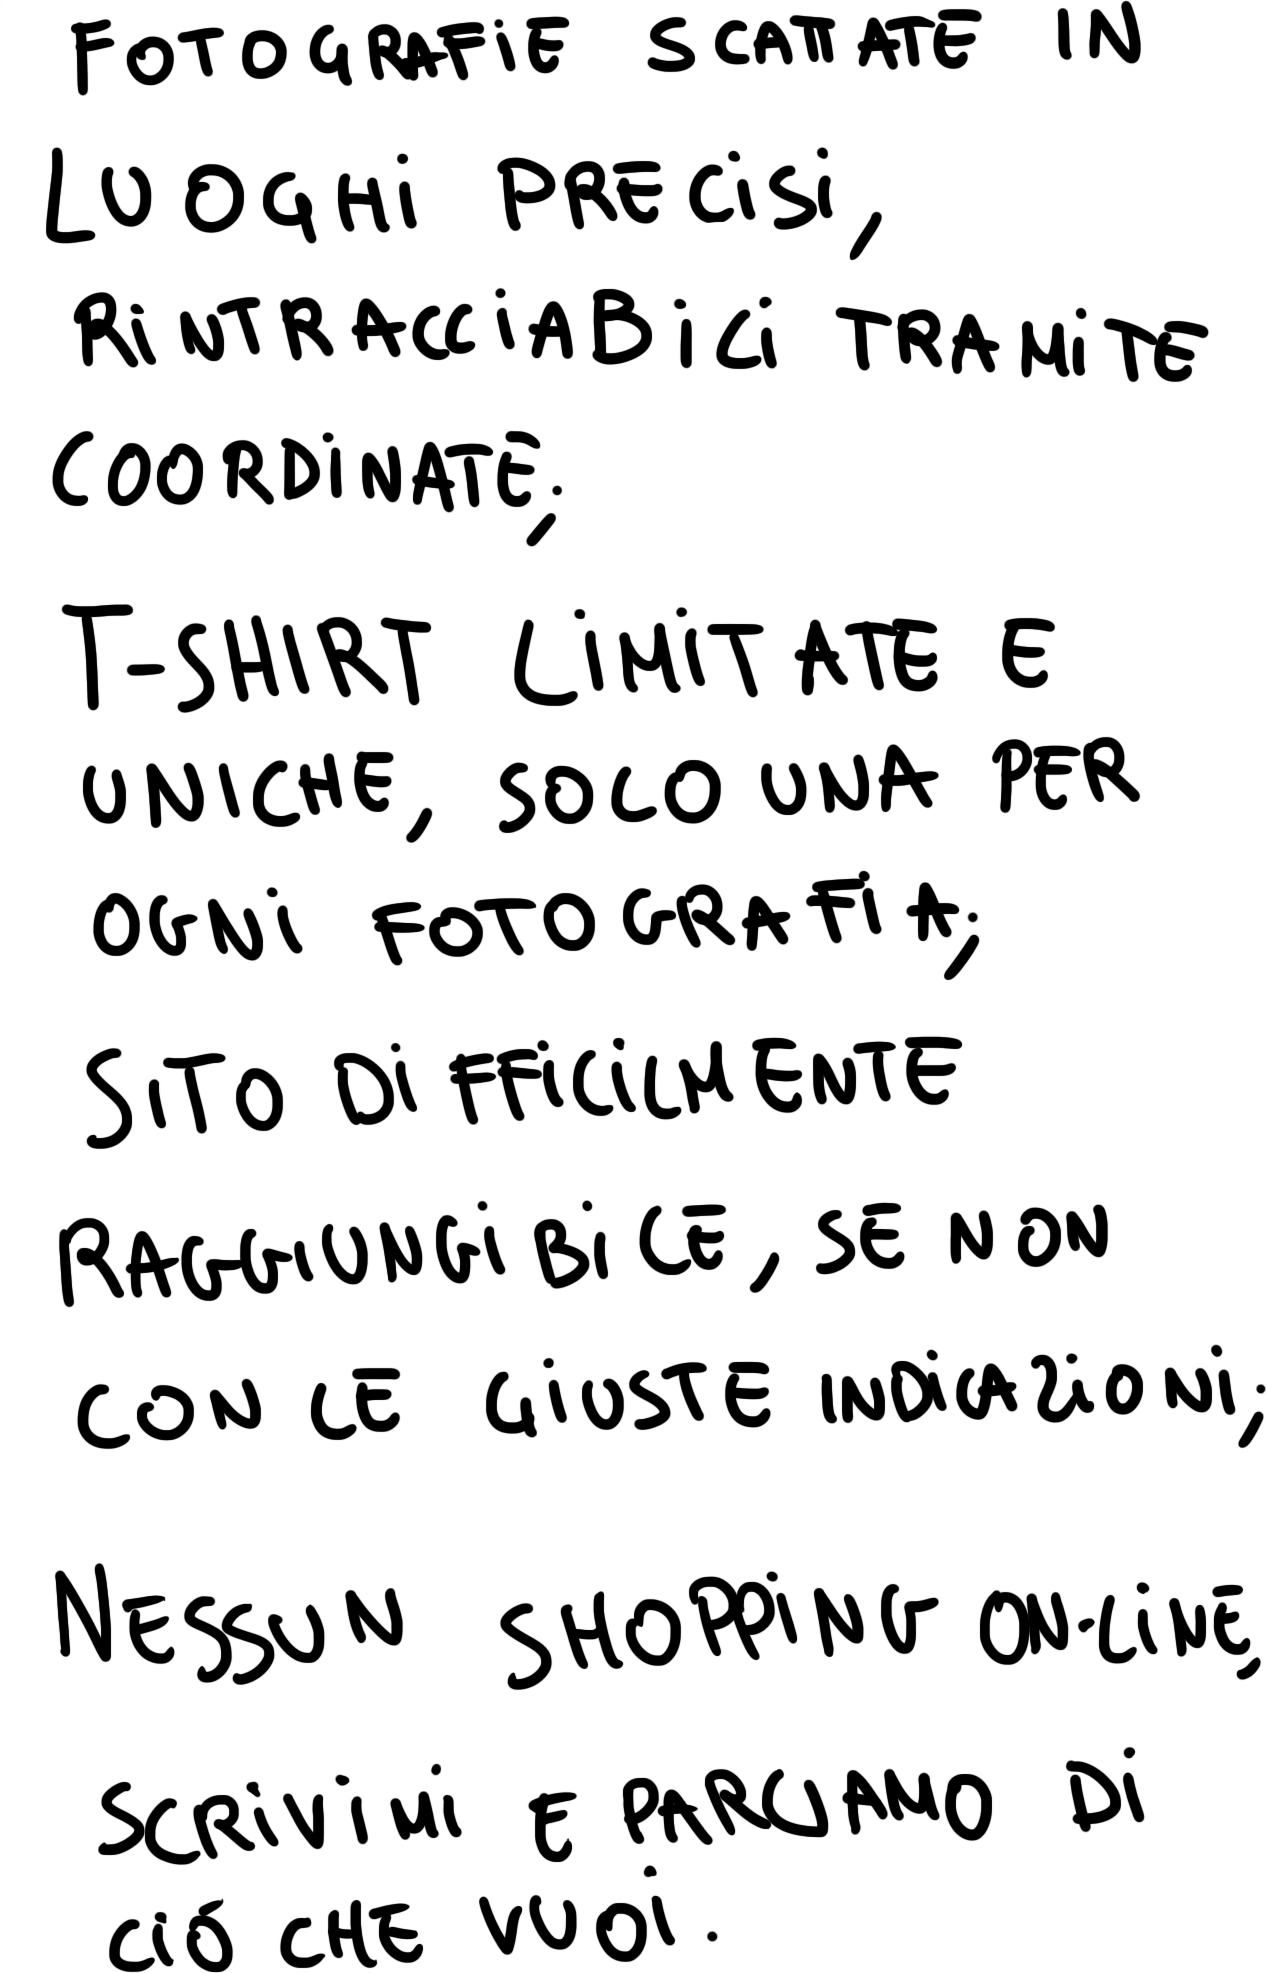 FOTOGRAFIE SCATTATE IN
LUOGHI PRECISI,
RINTRACCIABILI TRAMITE
COORDINATE;
T-SHIRT LIMITATE E
UNICHE, SOLO UNA PER
OGNI FOTOGRAFIA;
SITO DIFFICILMENTE
RAGGIUNGIBILE, SE NON
CON LE GIUSTE INDICAZIONI;
NESSUN SHOPPING ON-LINE,
SCRIVIMI E PARLIAMO DI
CIÓ CHE VUOI.